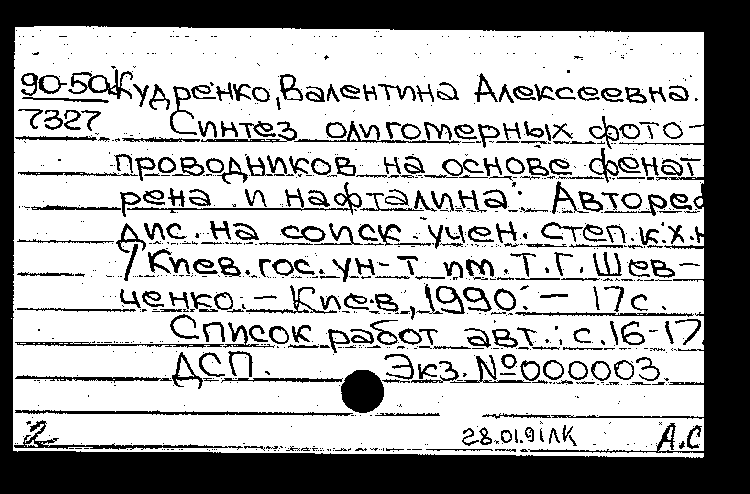 90-50. Кудренко, Валентина Алексеевна.
7327 Синтез олигомерных фото-
проводников на основе фенат
рена и нафталина: Автореф
дис. на соиск. учен. степ. к.х.н
/ Киев. гос. ун-т им. Т.Г. Шев-
ченко. — Киев, 1990. — 17 с.
Список работ авт.: с. 16-17.
ДСП. Экз. № 000003.
2 28.01.91 ЛК А.С